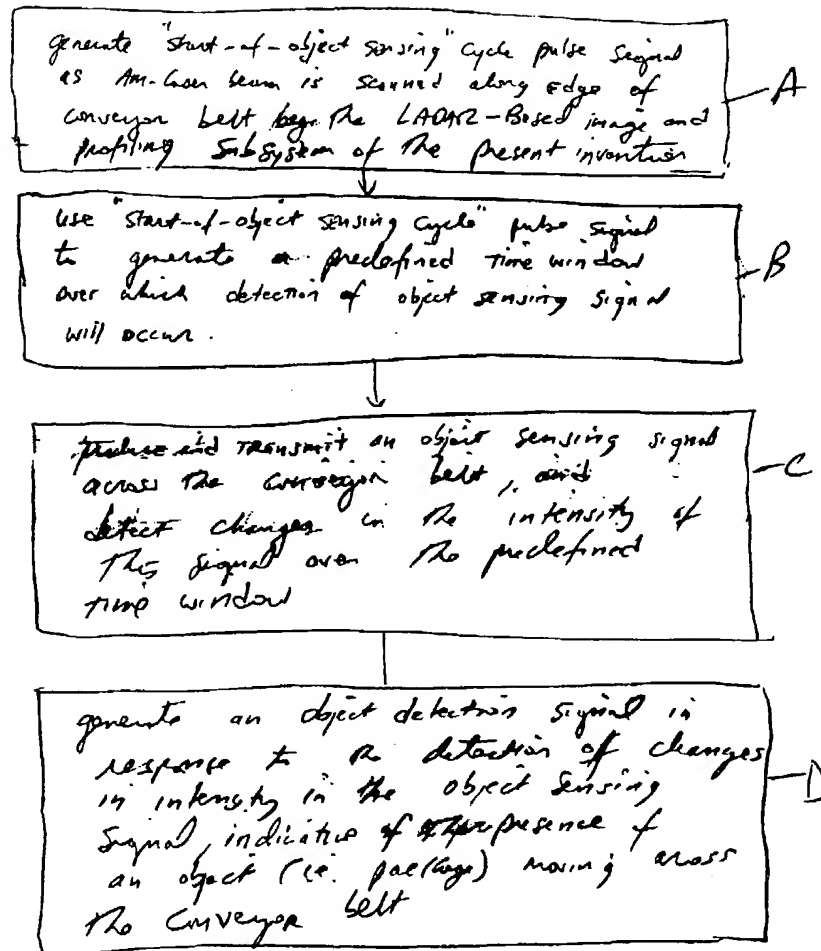 generate "start-of-object sensing" cycle pulse signal
as Am-laser beam is scanned along edge of
conveyor belt by the LADAR-Based image and
profiling subsystem of the present invention
A
use "start-of-object sensing cycle" pulse signal
to generate a predefined time window
over which detection of object sensing signal
will occur.
B
produce and transmit an object sensing signal
across the conveyor belt, and
detect changes in the intensity of
this signal over the predefined
time window
C
generate an object detection signal in
response to the detection of changes
in intensity in the object sensing
signal, indicative of the presence of
an object (i.e. package) moving across
the conveyor belt
D